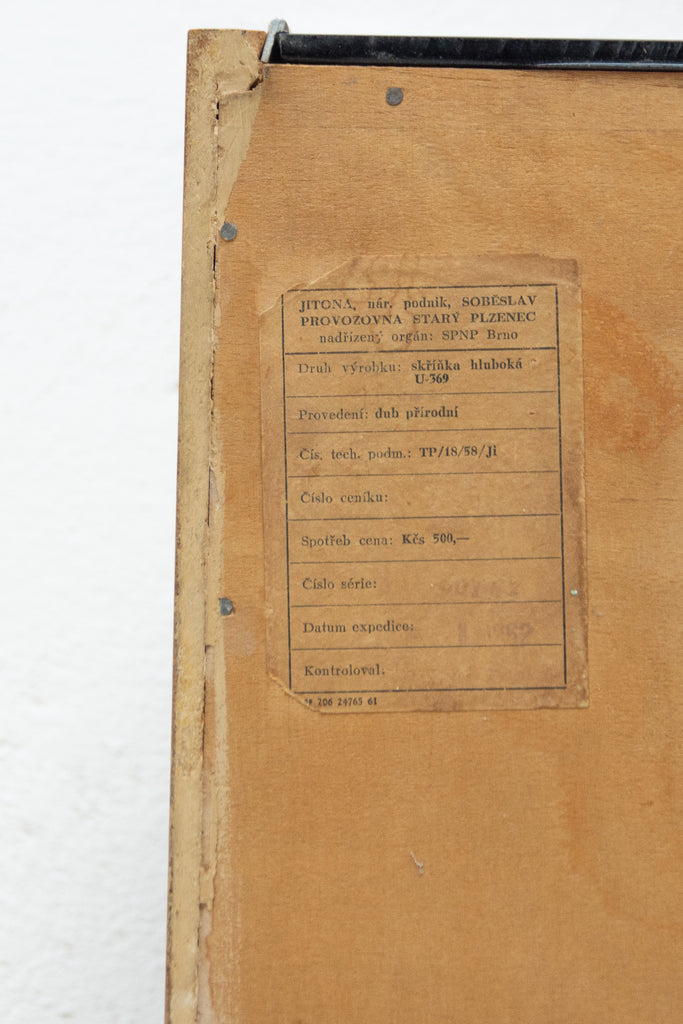 JITONA, nár. podnik, SOBĚSLAV
PROVOZOVNA STARÝ PLZENEC
nadřízený orgán: SPNP Brno
Druh výrobku: skříňka hluboká
U-369
Provedení: dub přírodní
Čís. tech. podm.: TP/18/58/Ji
Číslo ceníku:
Spotřeb cena: Kčs 500,—
Číslo série:
Datum expedice:
Kontroloval.
206 24765 61